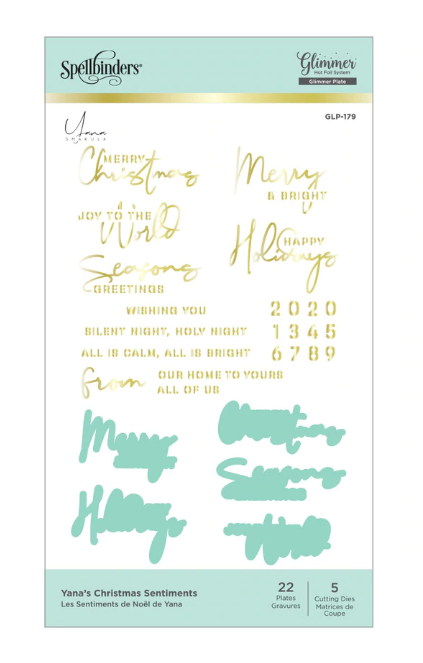 Spellbinders®
Glimmer
Hot Foil System
Glimmer Plate
GLP-179
Yana
SMAKULA
MERRY
Christmas
Merry
& BRIGHT
JOY TO THE
World
HAPPY
Holidays
Seasons
GREETINGS
WISHING YOU
2 0 2 0
SILENT NIGHT, HOLY NIGHT
1 3 4 5
ALL IS CALM, ALL IS BRIGHT
6 7 8 9
from
OUR HOME TO YOURS
ALL OF US
Yana's Christmas Sentiments
Les Sentiments de Noël de Yana
22
Plates
Gravures
5
Cutting Dies
Matrices de
Coupe